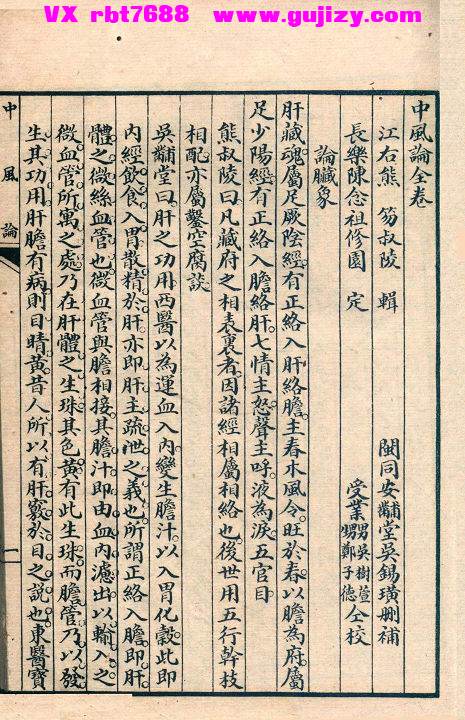 VX rbt7688 www.gujizy.com
中風論全卷
江右熊笏叔陵 輯 閩同安黼堂吳錫璜刪補
長樂陳念祖修園 定 受業男吳樹萱甥鄭子德仝校
論臟象
肝藏魂屬足厥陰經有正絡入肝絡膽主春木風令旺於春以膽為府屬
足少陽經有正絡入膽絡肝七情主怒聲主呼液為淚五官目
熊叔陵曰凡藏府之相表裏者因諸經相屬相絡也後世用五行幹枝
相配亦屬鑿空腐談
吳黼堂曰肝之功用西醫以為運血入內變生膽汁以入胃化穀此即
內經飲食入胃散精於肝亦即肝主疏泄之義也所謂正絡入膽即肝
體之微絲血管也微血管與膽相接其膽汁即由血內濾出以輸入之
微血管所寓之處乃在肝體之生珠其色黃有此生珠而膽管乃以發
生其功用肝膽有病則目睛黃昔人所以有肝竅於目之說也東醫寶
中風論
一